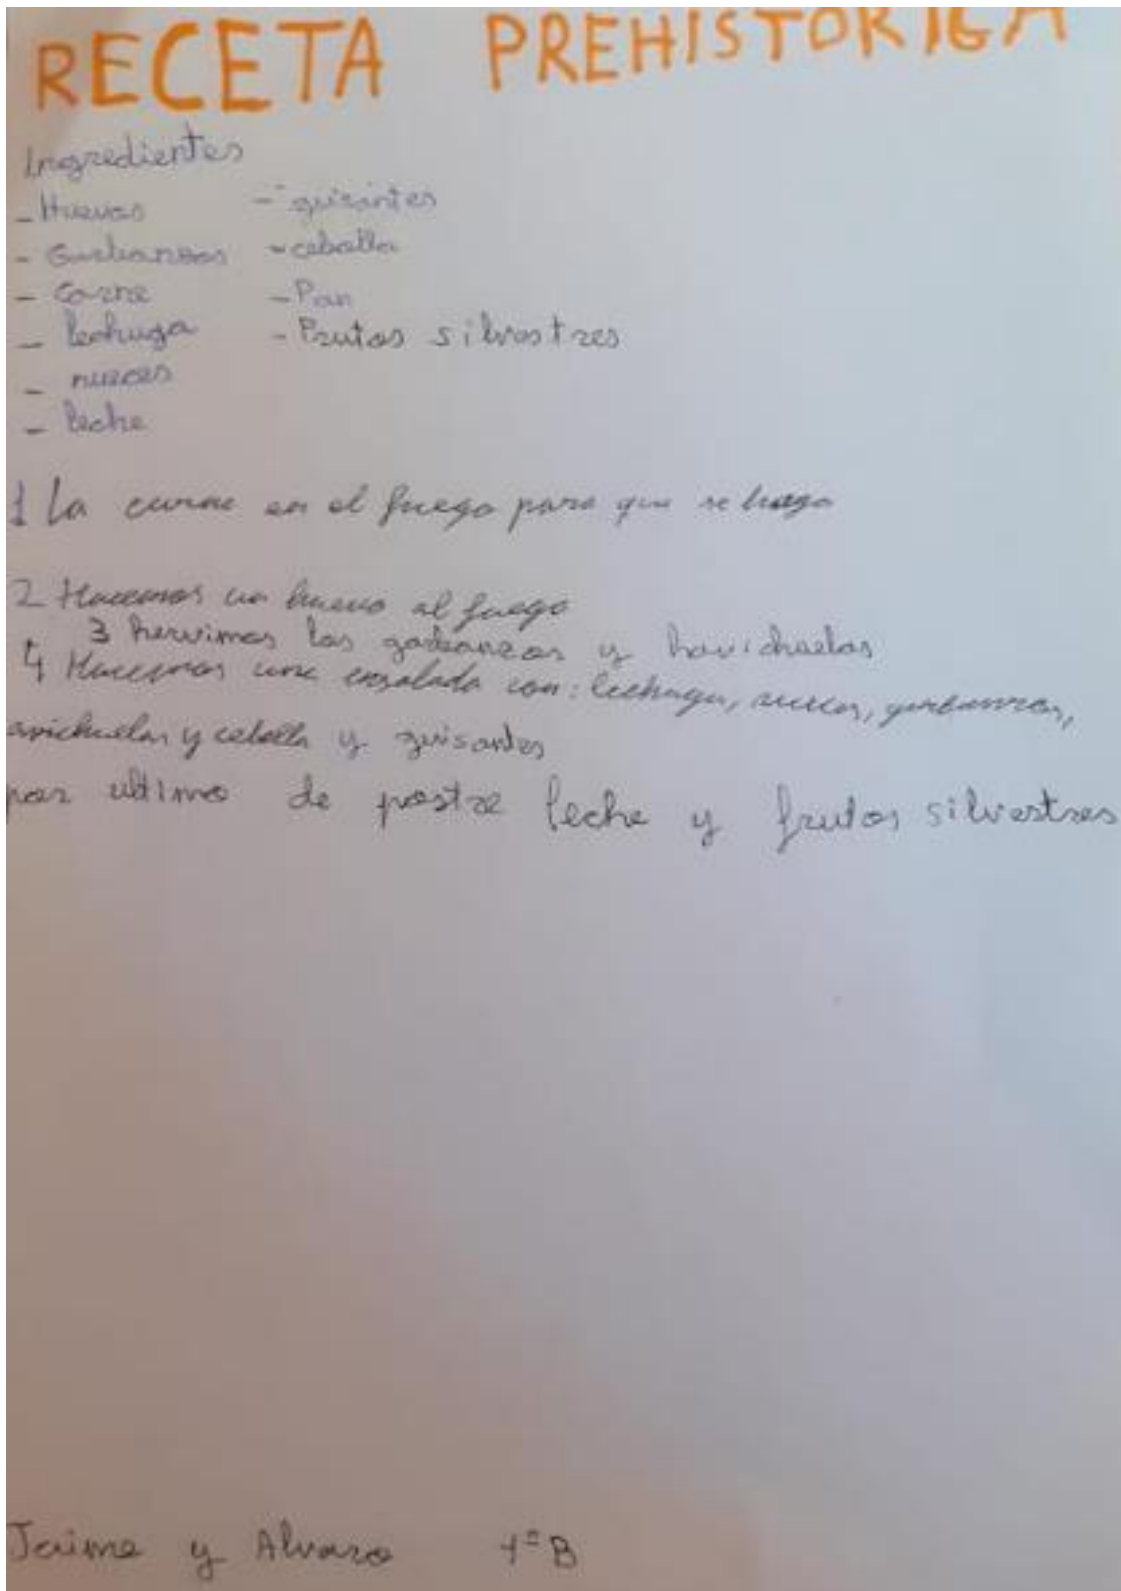 RECETA PREHISTORICA
Ingredientes
- Huevos
- Garbanzos
- Carne
- lechuga
- nueces
- leche
- guisantes
- cebolla
- Pan
- Frutos silvestres
1 La carne en el fuego para que se haga
2 Hacemos un huevo al fuego
3 hervimos los garbanzos y havichuelas
4 Hacemos una ensalada con: lechuga, nueces, garbanzos,
avichuelas y cebolla y guisantes
por ultimo de postre leche y frutos silvestres
Jaime y Alvaro 1º B